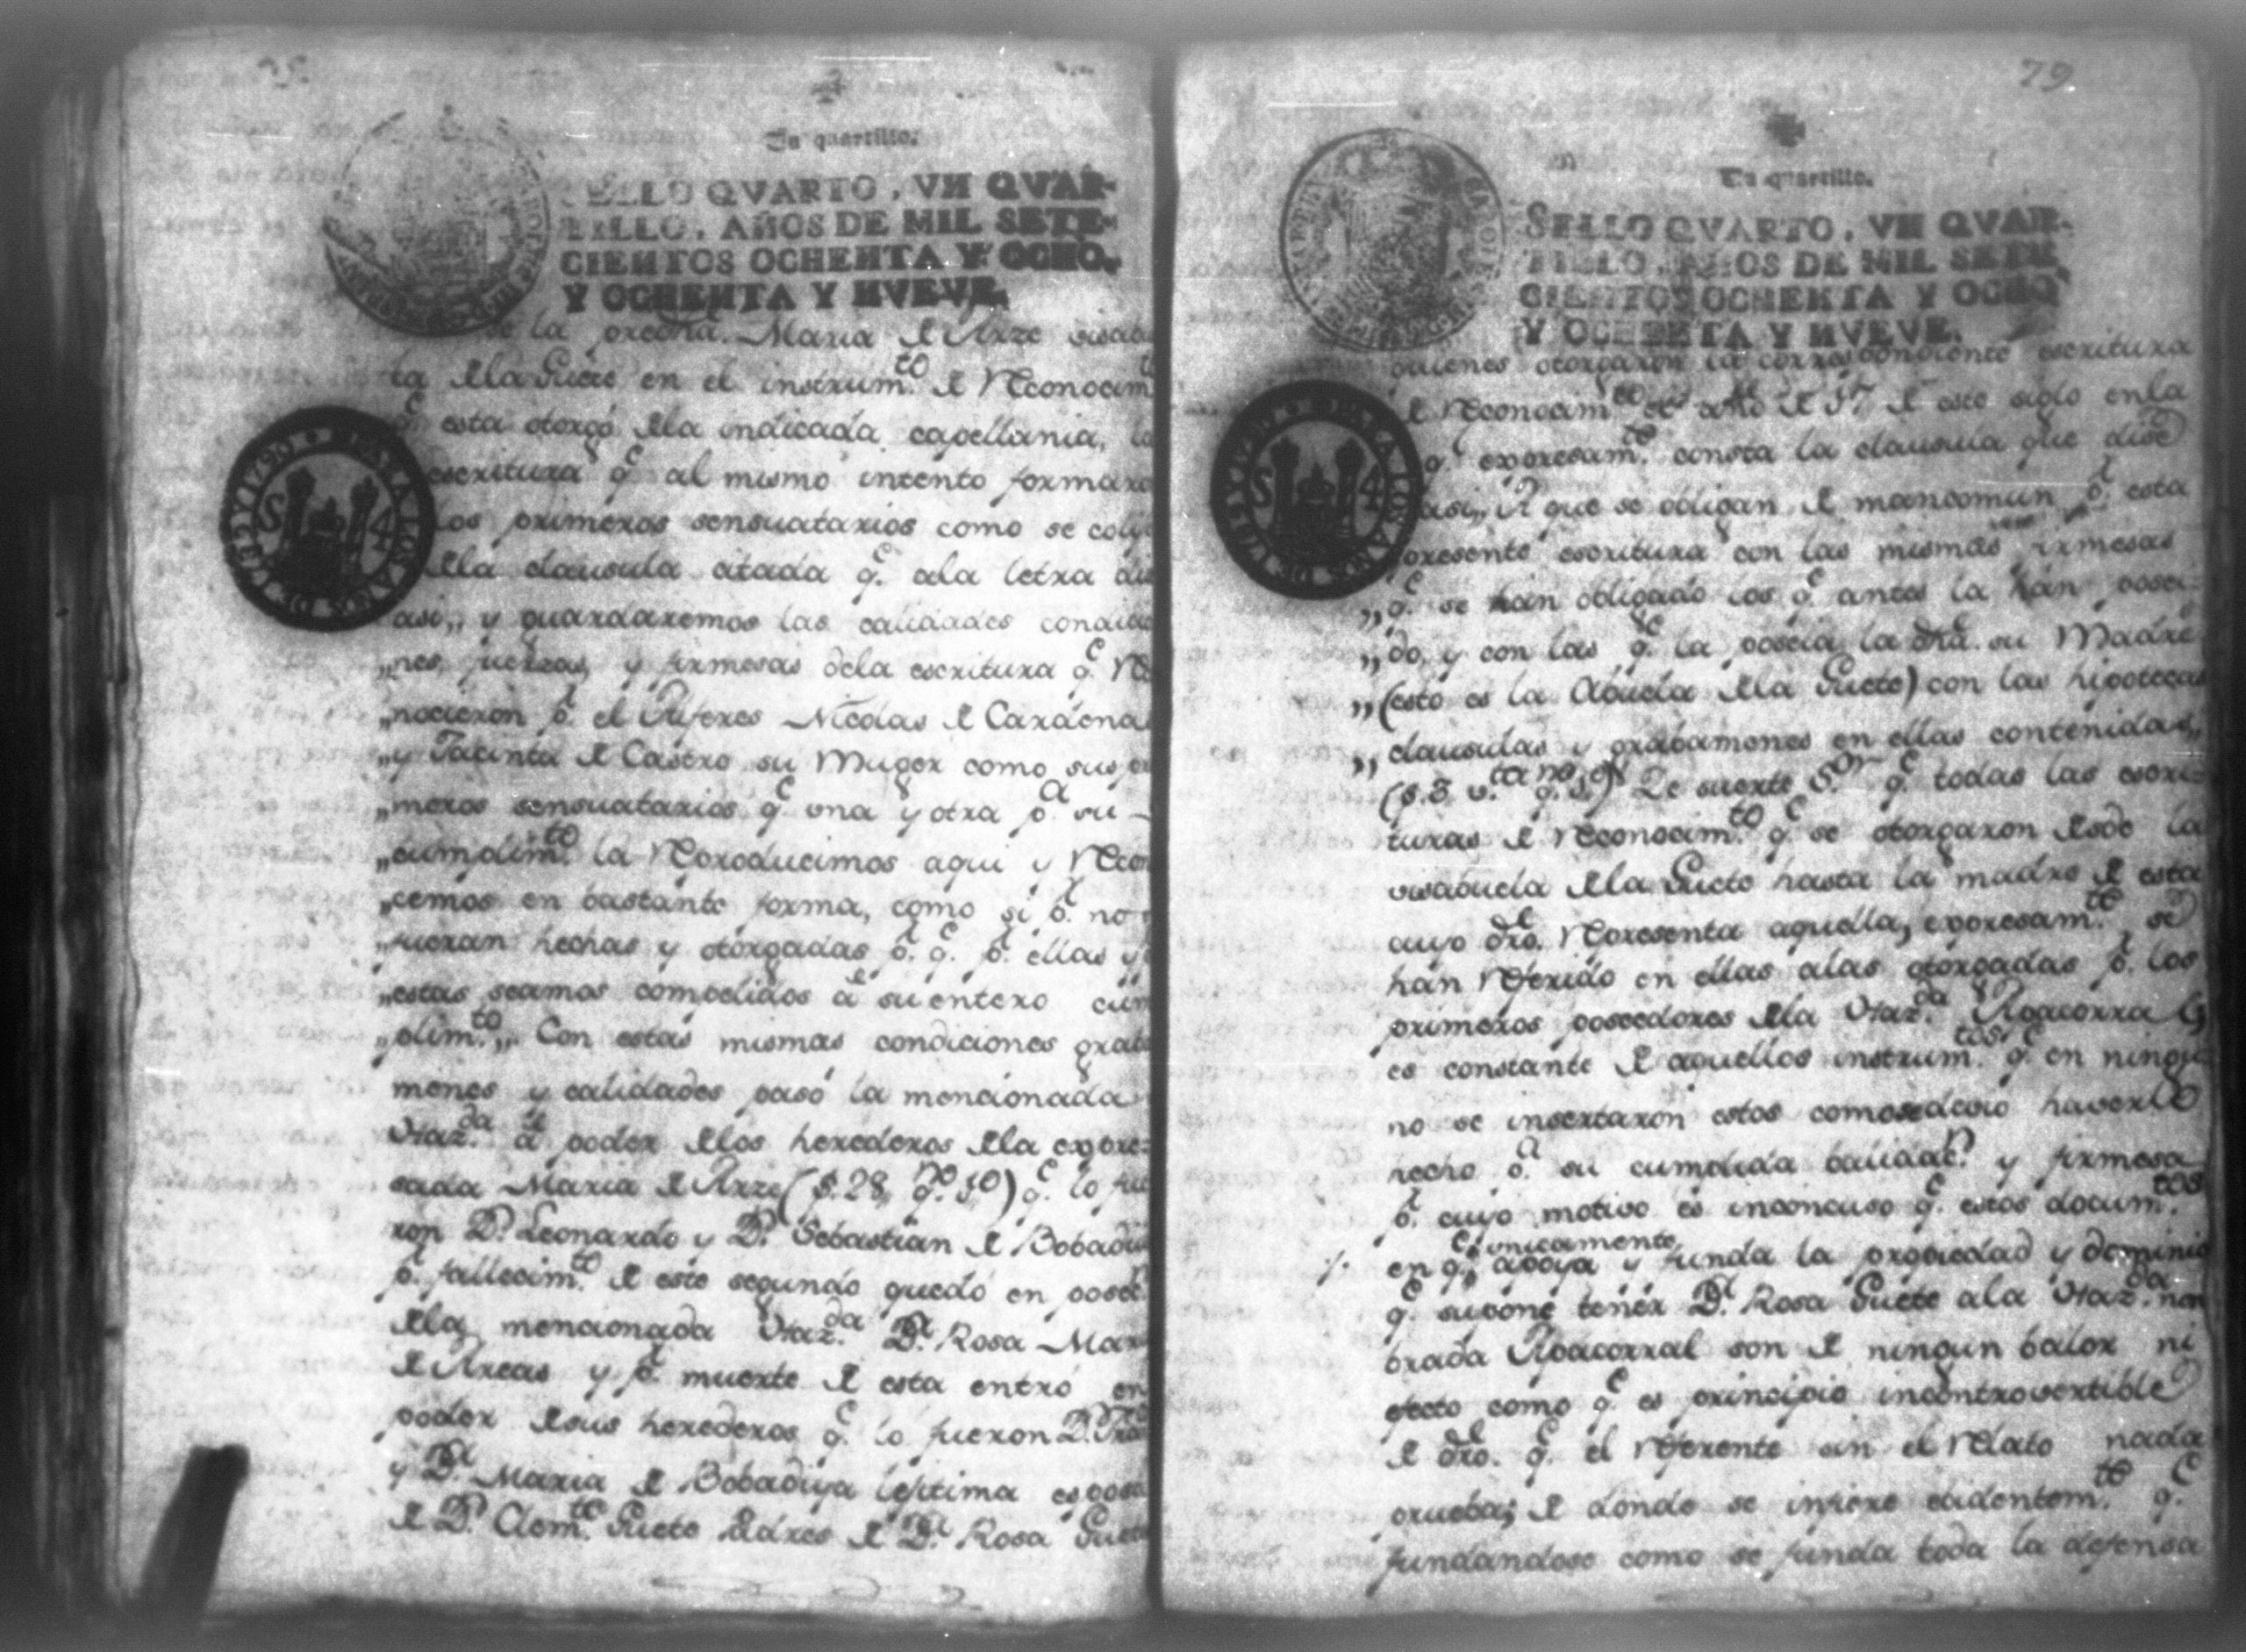 Un quartillo.
SELLO QVARTO, VN QVAR-
TILLO, AÑOS DE MIL SETE-
CIENTOS OCHENTA Y OCHO,
Y OCHENTA Y NVEVE.
de la predha. Maria de Arze visabue
ta de la Puete en el instrum.to de Reconocim.to
q.e esta otorgó de la indicada capellania, la
escritura q.e al mismo intento formaro
los primeros sensuatarios como se coli
de la clausula citada q.e ala letra dis
asi,, y guardaremos las calidades condicio
„nes, fuerzas, y firmesas dela escritura q.e Reco
„nocieron p.r el Alferes Nicolas de Cardena
„y Jacinta de Castro su Muger como sus pri
„meros sensuatarios q.e una y otra p.a su
„cumplim.to la Reproducimos aqui y Recono
„cemos en bastante forma, como si p.r no
„fueran hechas y otorgadas p.a q.e p.r ellas y
„estas seamos compelidos a su entero cum
„plim.to„ Con estas mismas condiciones graba
menes y calidades pasó la mencionada
Haz.da á poder de los herederos de la expre-
sada Maria de Arze (f. 28, q.no 1.o) q.e lo fue
ron D.n Leonardo y D.n Sebastian de Bobadi
p.r fallecim.to de este segundo quedó en poses.n
de la mencionada Haz.da D.a Rosa Mar
de Arcas y p.r muerte de esta entró en
poder de sus herederos q.e lo fueron D.n
y D.a Maria de Bobadiya lejitima esposa
de D.n Clem.te Puete Padres de D.a Rosa Puete
79
Un quartillo.
SELLO QVARTO, VN QVAR-
TILLO, AÑOS DE MIL SETE
CIENTOS OCHENTA Y OCHO
Y OCHENTA Y NVEVE.
quienes otorgaron la correspondiente escritura
de Reconocim.to el año de 57 de este siglo en la
q.e expresam.te consta la clausula que dise
asi„ A que se obligan de mancomun p.r esta
presente escritura con las mismas firmesas
„q.e se han obligado los q.e antes la han posei-
„do, y con las q.e la poseia la dha. su Madre
„(esto es la Abuela de la Puete) con las hipotecas
„clausulas y grabamenes en ellas contenidas„
(f. 3 v.ta q.no 3.o) De suerte S.or q.e todas las escri-
turas de Reconocim.to q.e se otorgaron desde la
visabuela de la Puete hasta la madre de esta
cuyo dro. Representa aquella, expresam.te se
han Referido en ellas alas otorgadas p.r los
primeros poseedores de la Haz.da Apacorral y
es constante de aquellos instrum.tos q.e en ningu
no se insertaron estos como se devio haverlo
hecho p.a su cumplida balidac.n y firmesa
p.r cuyo motivo es inconcuso q.e estos docum.tos
en q.e unicamente apoya y funda la propiedad y dominio
q.e supone tener D.a Rosa Puete ala Haz.da nom
brada Apacorral son de ningun balor ni
efecto como q.e es principio incontrovertible
de dro. q.e el Referente sin el Relato nada
prueba; de donde se infiere evidentem.te q.e
fundandose como se funda toda la defensa